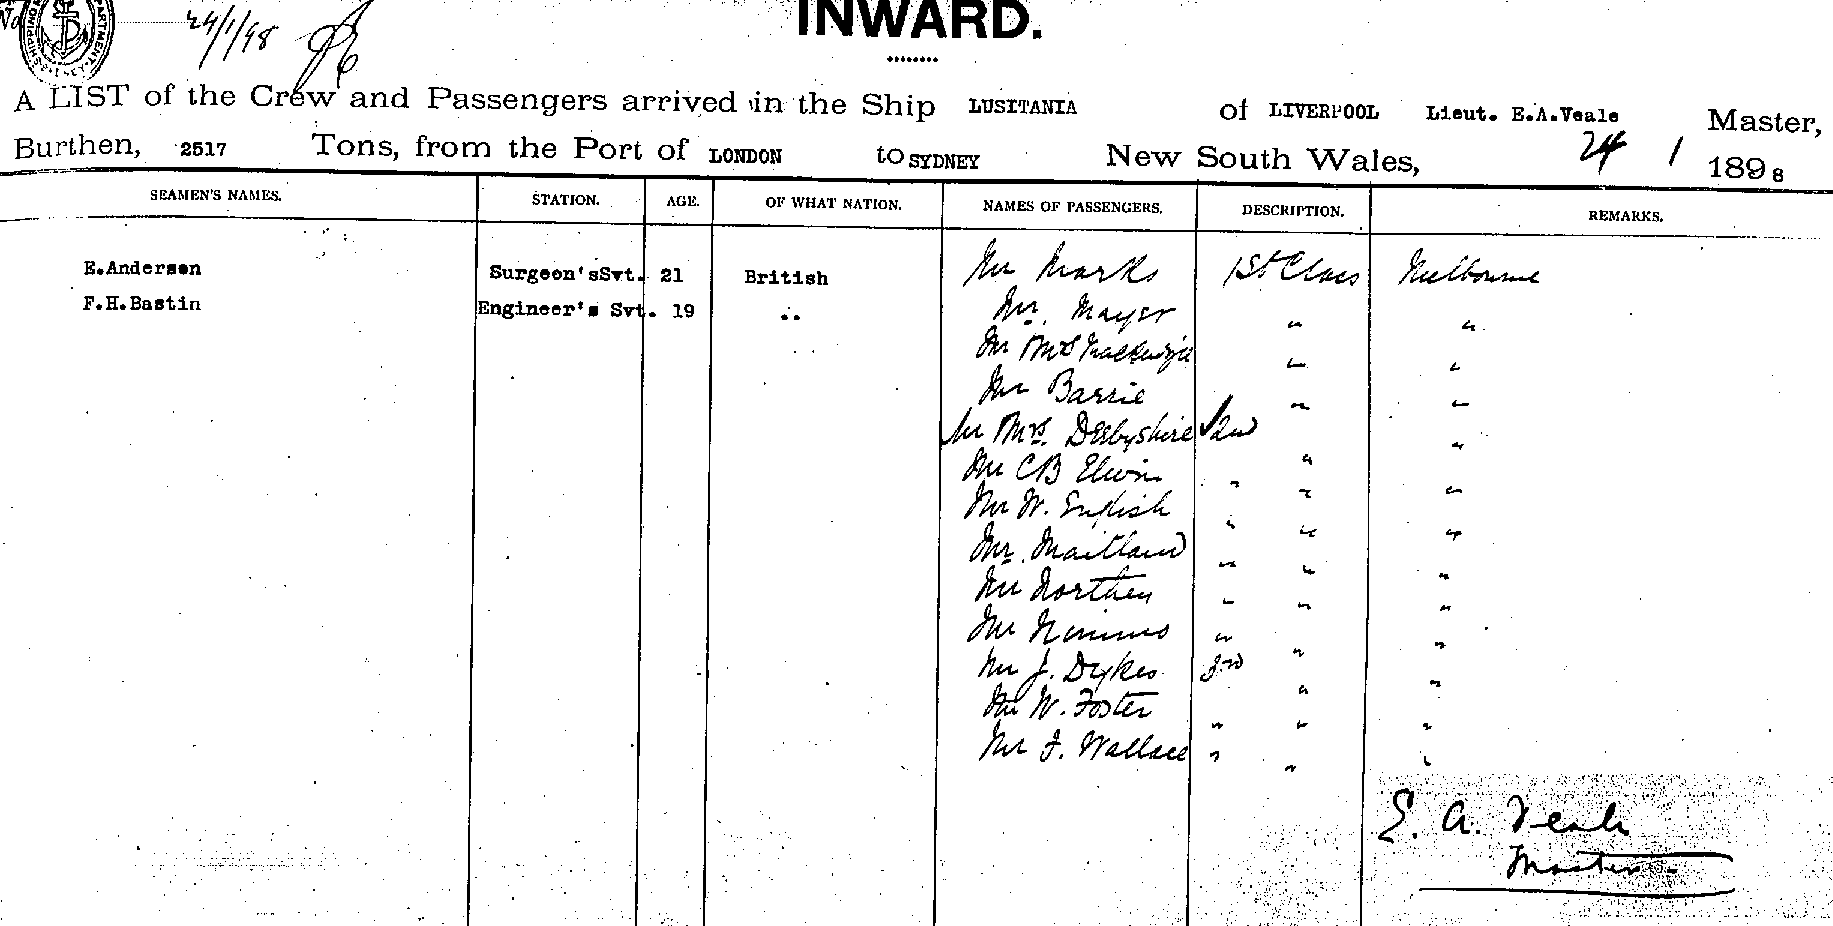 No
SHIPPING DEPARTMENT
24/1/98
INWARD.
A LIST of the Crew and Passengers arrived in the Ship LUSITANIA of LIVERPOOL Lieut. E.A.Veale Master,
Burthen, 2517 Tons, from the Port of LONDON to SYDNEY New South Wales, 24 1 1898
SEAMEN'S NAMES. STATION. AGE. OF WHAT NATION. NAMES OF PASSENGERS. DESCRIPTION. REMARKS.
E.Anderson Surgeon'sSvt. 21 British Mr Marks 1st Class Melbourne
F.H.Bastin Engineer's Svt. 19 .. Mr. Mayer " "
Mr Mrs " "
Mr Barrie " "
Mr Mrs. Derbyshire 2nd " "
Mr C B Elwin " " "
Mr W. English " " "
Mr. Maitland " " "
Mr Northey " " "
Mr Nimmo " " "
Mr J. Dykes 3rd " "
Mr W. Foster " " "
Mr F. Wallace " " "
E. A. Veale
Master